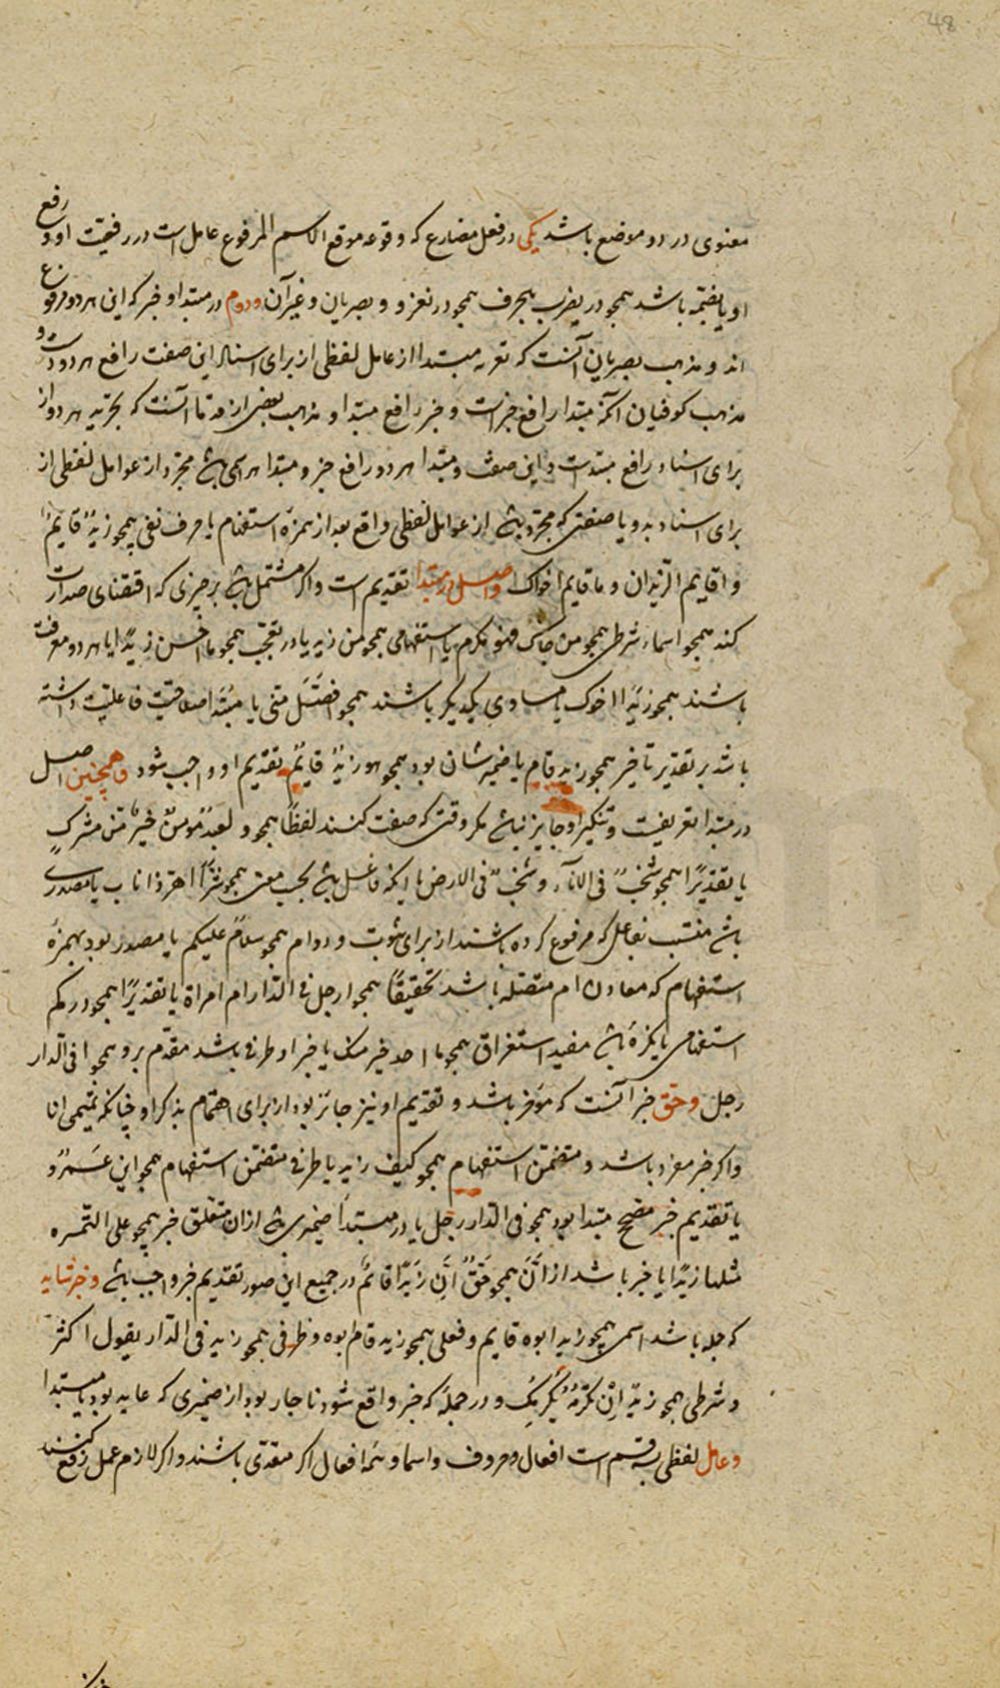 48
معنوی در دو موضع باشد یکی در فعل مضارع که وقوعه موقع الاسم المرفوع عامل است در رفعیت او و رفع
او یا بضمه باشد همچو در یضرب بحرف همچو در تغزو و یضربان و غیر آن ودوم در مبتدا و خبر که این هر دو مرفوع
اند و مذهب بصریان آنست که تعریه مبتدا از عامل لفظی از برای اسناد این صفت رافع هر دوست و
مذهب کوفیان آنکه مبتدا رافع خبر است و خبر رافع مبتدا و مذهب بعضی از قدما آنست که تجرید هر دو از
برای اسناد رافع مبتداست و این صفت و مبتدا هر دو رافع خبر و مبتدا هر اسمی باشد مجرد از عوامل لفظی از
برای اسناد بدو یا صفتی که مجرد باشد از عوامل لفظی واقع بعد از همزه استفهام یا حرف نفی همچو زید قایم
و اقایم الزیدان و ما قایم اخواک واصل در مبتدا تقدیم است و اگر مشتمل باشد بر چیزی که اقتضای صدارت
کند همچو اسماء شرطی همچو من جاک فهو مکرم یا استفهامی همچو من زید یا در تعجب همچو ما احسن زیدا یا هر دو معرفت
باشند همچو زید اخوک یا مساوی یکدیگر باشند همچو افضل منی یا مبتدا صلاحیت فاعلیت داشته
باشد بر تقدیر تاخیر همچو زید قام یا ضمیر شان بود همچو هو زید قایم تقدیم او واجب شود وهمچنین اصل
در مبتدا تعریفست و تنکیر او جایز نباشد مگر وقتی که صفت کنند لفظا همچو و لعبد مومن خیر من مشرک
یا تقدیرا همچو شخب فی الاناء و شخب فی الارض یا آنکه فاعل باشد بحسب معنی همچو شر اهر ذا ناب یا مصدری
باشد منتسب بفاعل که مرفوع کرده باشند از برای ثبوت و دوام همچو سلام علیکم یا مصدر بود بهمزه
استفهام که معادل ام متصله باشد تحقیقا همچو ارجل فی الدار ام امراة یا تقدیرا همچو در کم
استفهامی یا نکره باشد مفید استغراق همچو ما احد خیر منک یا خبر او ظرفی باشد مقدم برو همچو افی الدار
رجل وحق خبر آنست که موخر باشد و تقدیم او نیز جائز بود از برای اهتمام بذکر او چنانکه تمیمی انا
واگر خبر مفرد باشد و متضمن استفهام همچو کیف زید یا ظرفی متضمن استفهام همچو این عمرو
یا تقدیم خبر مصحح مبتدا بود همچو فی الدار رجل یا در مبتدا ضمیری باشد از ان متعلق خبر همچو علی التمره
مثلها زبدا یا خبر باشد از ان همچو حق ان زیدا قائم در جمیع این صور تقدیم خبر واجب باشد وخبر شاید
که جمله باشد اسمی همچو زید ابوه قایم و فعلی همچو زید قام ابوه و ظرفی همچو زید فی الدار بقول اکثر
و شرطی همچو زید ان تکرمه یکرمک و در جمله که خبر واقع شود ناچار بود از ضمیری که عاید بود بمبتدا
وعامل لفظی سه قسم است افعال و حروف و اسما و همه افعال اگر متعدی باشند و اگر لازم عمل رفع کنند